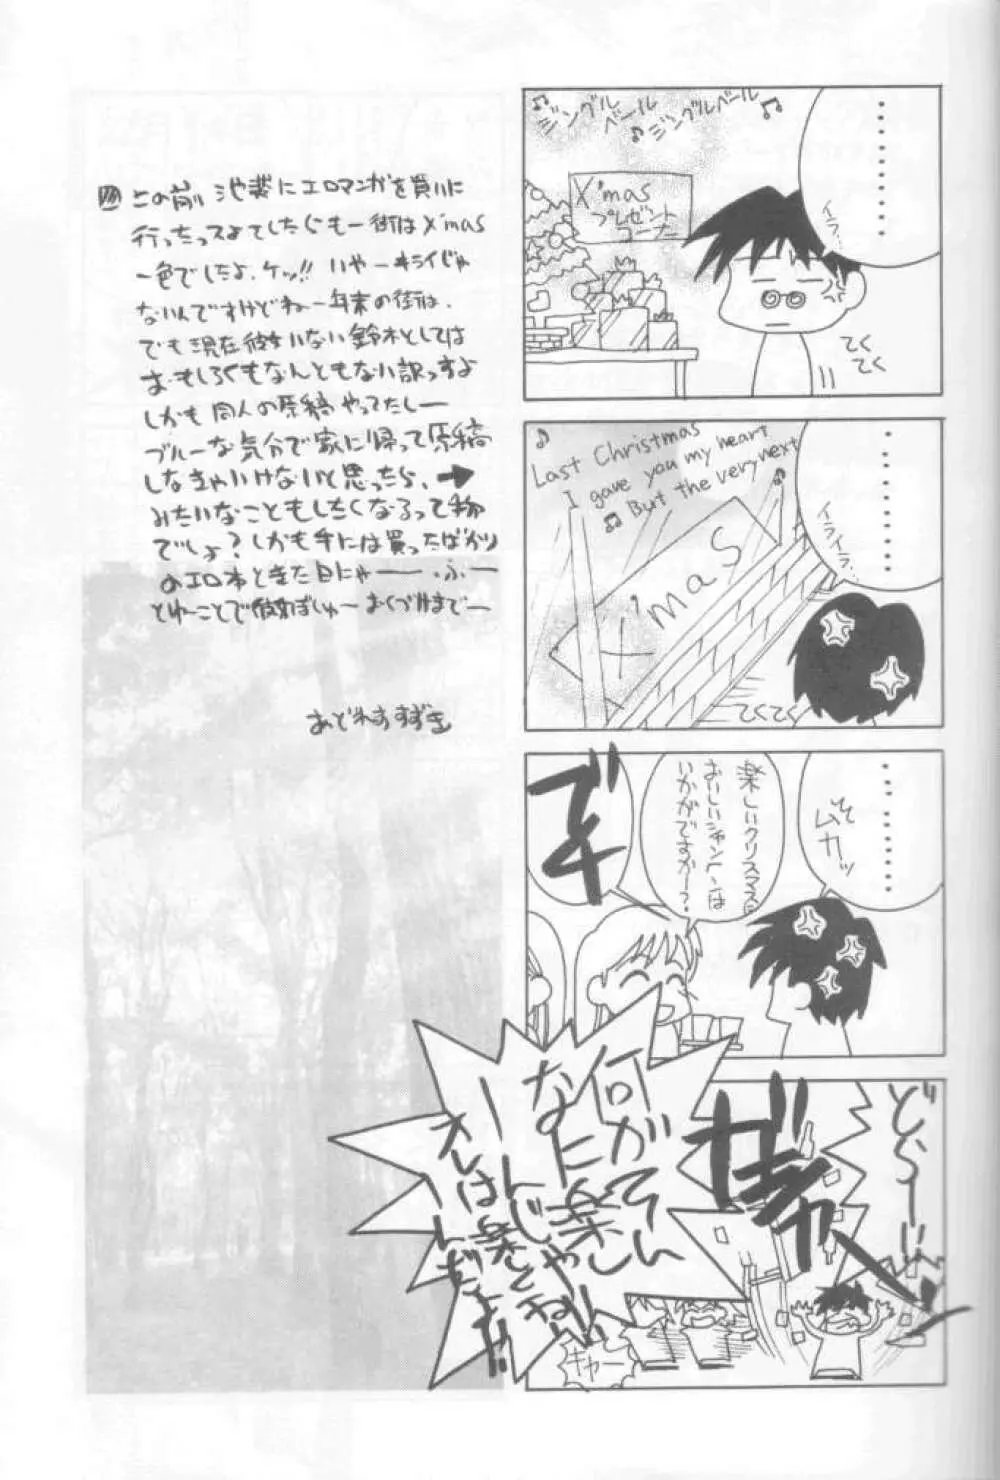 この前 池袋にエロマンガを買いに
行ったっスよてしたらもー街はX'mas
一色でしたよ、ケッ!! いやーキライじゃ
ないんですけどねー年末の街は、
でも現在彼女いない鈴木としては
おもしろくもなんともない訳っすよ
しかも同人の原稿やってたしー
ブルーな気分で家に帰って原稿
しなきゃいけないと思ったら、→
みたいなこともしたくなるって物
でしょ?しかも手には買ったばかり
のエロ本ときた日にゃー ふー
とゆーことで彼女ぼしゅー おくづけまでー
あどれすすずき
♪ジングルベール♪ジングルベール♪
X'mas
プレゼント
コーナー
・・・・・・・・
イライラ…
てくてく
♪
Last Christmas
I gave you my heart
♫ But the very next
♫
X'mas
・・・・・・・・
イライラ…
てくてく
・・・・・・・
ムカッ
楽しいクリスマスに
おいしいシャンペンは
いかがですかー?
でも
どら〜!!
何がそんな
に楽しい
んじゃ
キャー